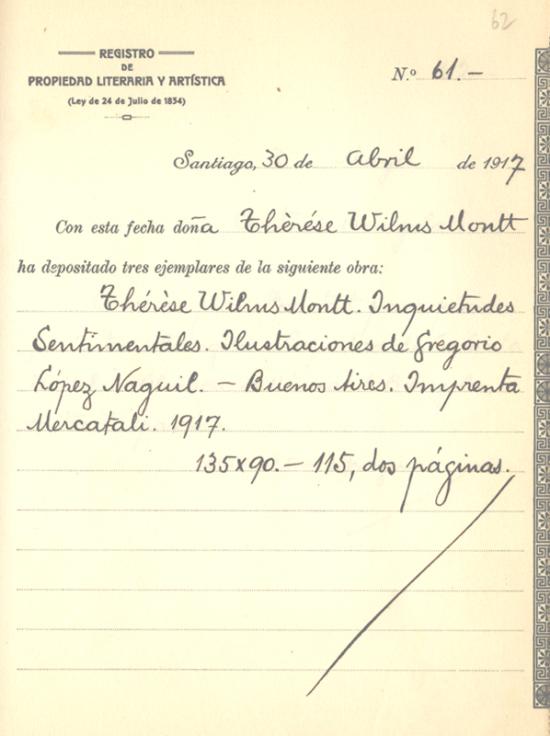 62
REGISTRO
DE
PROPIEDAD LITERARIA Y ARTÍSTICA
(Ley de 24 de Julio de 1834)
N.º 61.-
Santiago, 30 de Abril de 1917
Con esta fecha doña Thèrése Wilms Montt
ha depositado tres ejemplares de la siguiente obra:
Thérèse Wilms Montt. Inquietudes
Sentimentales. Ilustraciones de Gregorio
López Naguil. — Buenos Aires. Imprenta
Mercatali. 1917.
135x90.- 115, dos páginas.